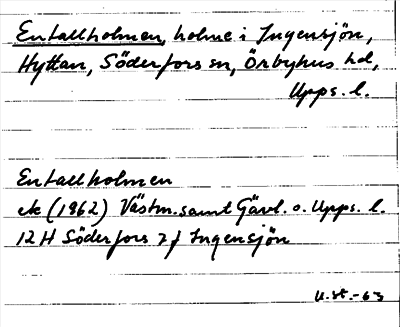 Entallholmen, holme i Ingensjön,
Hyttan, Söderfors sn, Örbyhus hd,
Upps. l.
Entallholmen
ek (1962) Västm. samt Gävl. o. Upps. l.
12 H Söderfors 7 f Ingensjön
U. St. -63